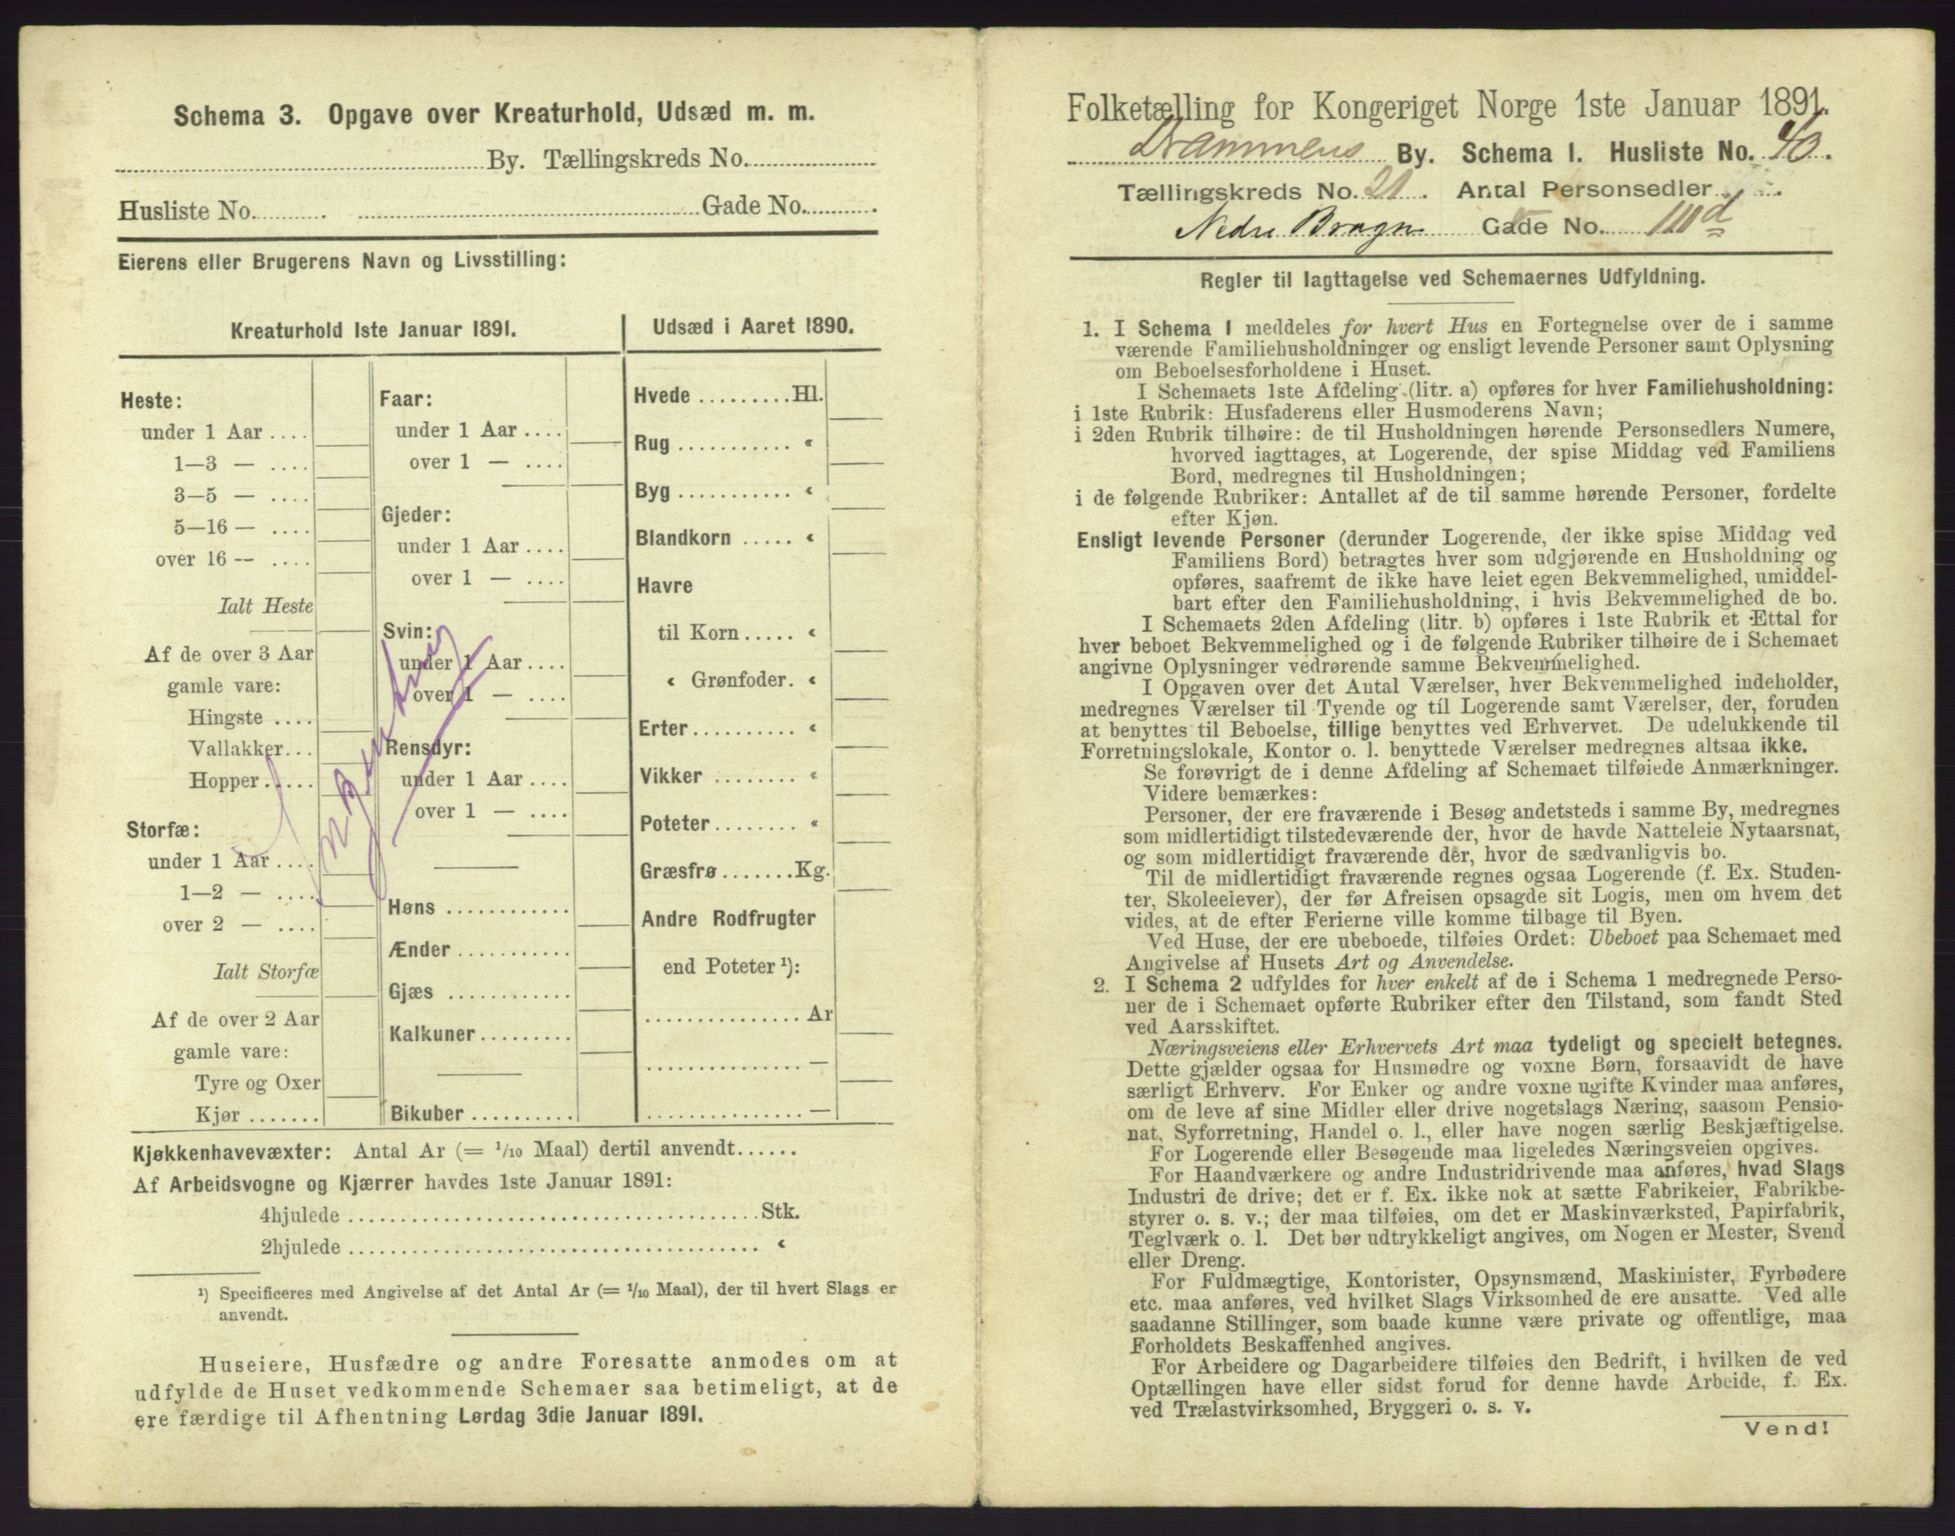 Schema 3. Opgave over Kreaturhold, Udsæd m. m.
By. Tællingskreds No.
Husliste No. Gade No.
Eierens eller Brugerens Navn og Livsstilling:
Kreaturhold 1ste Januar 1891.
Heste:
under 1 Aar ....
1—3 — ....
3—5 — ....
5—16 — ....
over 16 — ....
Ialt Heste
Af de over 3 Aar
gamle vare:
Hingste ....
Vallakker...
Hopper .....
Storfæ:
under 1 Aar ....
1—2 — ....
over 2 — ....
Ialt Storfæ
Af de over 2 Aar
gamle vare:
Tyre og Oxer
Kjør .......
Faar:
under 1 Aar ....
over 1 — ....
Gjeder:
under 1 Aar ....
over 1 — ....
Svin:
under 1 Aar ....
over 1 — ....
Rensdyr:
under 1 Aar ....
over 1 — ....
Høns ............
Ænder ...........
Gjæs ............
Kalkuner.........
Bikuber ..........
Ingenting
Udsæd i Aaret 1890.
Hvede .........Hl.
Rug ........... «
Byg ........... «
Blandkorn ..... «
Havre
til Korn..... «
« Grønfoder. «
Erter.......... «
Vikker ........ «
Poteter........ «
Græsfrø .......Kg.
Andre Rodfrugter
end Poteter ¹):
............... Ar
............... —
............... —
Kjøkkenhavevæxter: Antal Ar (= 1/10 Maal) dertil anvendt......
Af Arbeidsvogne og Kjærrer havdes 1ste Januar 1891:
4hjulede ........................................Stk.
2hjulede ........................................ «
¹) Specificeres med Angivelse af det Antal Ar (= 1/10 Maal), der til hvert Slags er
anvendt.
Huseiere, Husfædre og andre Foresatte anmodes om at
udfylde de Huset vedkommende Schemaer saa betimeligt, at de
ere færdige til Afhentning Lørdag 3die Januar 1891.
Folketælling for Kongeriget Norge 1ste Januar 1891.
Drammens By. Schema I. Husliste No. 40.
Tællingskreds No. 21. Antal Personsedler
Nedre Bragn Gade No. 111d
Regler til Iagttagelse ved Schemaernes Udfyldning.
1. I Schema 1 meddeles for hvert Hus en Fortegnelse over de i samme
værende Familiehusholdninger og ensligt levende Personer samt Oplysning
om Beboelsesforholdene i Huset.
I Schemaets 1ste Afdeling (litr. a) opføres for hver Familiehusholdning:
i 1ste Rubrik: Husfaderens eller Husmoderens Navn;
i 2den Rubrik tilhøire: de til Husholdningen hørende Personsedlers Numere,
hvorved iagttages, at Logerende, der spise Middag ved Familiens
Bord, medregnes til Husholdningen;
i de følgende Rubriker: Antallet af de til samme hørende Personer, fordelte
efter Kjøn.
Ensligt levende Personer (derunder Logerende, der ikke spise Middag ved
Familiens Bord) betragtes hver som udgjørende en Husholdning og
opføres, saafremt de ikke have leiet egen Bekvemmelighed, umiddel-
bart efter den Familiehusholdning, i hvis Bekvemmelighed de bo.
I Schemaets 2den Afdeling (litr. b) opføres i 1ste Rubrik et Ettal for
hver beboet Bekvemmelighed og i de følgende Rubriker tilhøire de i Schemaet
angivne Oplysninger vedrørende samme Bekvemmelighed.
I Opgaven over det Antal Værelser, hver Bekvemmelighed indeholder,
medregnes Værelser til Tyende og til Logerende samt Værelser, der, foruden
at benyttes til Beboelse, tillige benyttes ved Erhvervet. De udelukkende til
Forretningslokale, Kontor o. l. benyttede Værelser medregnes altsaa ikke.
Se forøvrigt de i denne Afdeling af Schemaet tilføiede Anmærkninger.
Videre bemærkes:
Personer, der ere fraværende i Besøg andetsteds i samme By, medregnes
som midlertidigt tilstedeværende der, hvor de havde Natteleie Nytaarsnat,
og som midlertidigt fraværende der, hvor de sædvanligvis bo.
Til de midlertidigt fraværende regnes ogsaa Logerende (f. Ex. Studen-
ter, Skoleelever), der før Afreisen opsagde sit Logis, men om hvem det
vides, at de efter Ferierne ville komme tilbage til Byen.
Ved Huse, der ere ubeboede, tilføies Ordet: Ubeboet paa Schemaet med
Angivelse af Husets Art og Anvendelse.
2. I Schema 2 udfyldes for hver enkelt af de i Schema 1 medregnede Perso-
ner de i Schemaet opførte Rubriker efter den Tilstand, som fandt Sted
ved Aarsskiftet.
Næringsveiens eller Erhvervets Art maa tydeligt og specielt betegnes.
Dette gjælder ogsaa for Husmødre og voxne Børn, forsaavidt de have
særligt Erhverv. For Enker og andre voxne ugifte Kvinder maa anføres,
om de leve af sine Midler eller drive nogetslags Næring, saasom Pensio-
nat, Syforretning, Handel o. l., eller have nogen særlig Beskjæftigelse.
For Logerende eller Besøgende maa ligeledes Næringsveien opgives.
For Haandværkere og andre Industridrivende maa anføres, hvad Slags
Industri de drive; det er f. Ex. ikke nok at sætte Fabrikeier, Fabrikbe-
styrer o. s. v.; der maa tilføies, om det er Maskinværksted, Papirfabrik,
Teglværk o. l. Det bør udtrykkeligt angives, om Nogen er Mester, Svend
eller Dreng.
For Fuldmægtige, Kontorister, Opsynsmænd, Maskinister, Fyrbødere
etc. maa anføres, ved hvilket Slags Virksomhed de ere ansatte. Ved alle
saadanne Stillinger, som baade kunne være private og offentlige, maa
Forholdets Beskaffenhed angives.
For Arbeidere og Dagarbeidere tilføies den Bedrift, i hvilken de ved
Optællingen have eller sidst forud for denne havde Arbeide, f. Ex.
ved Trælastvirksomhed, Bryggeri o. s. v.
Vend!